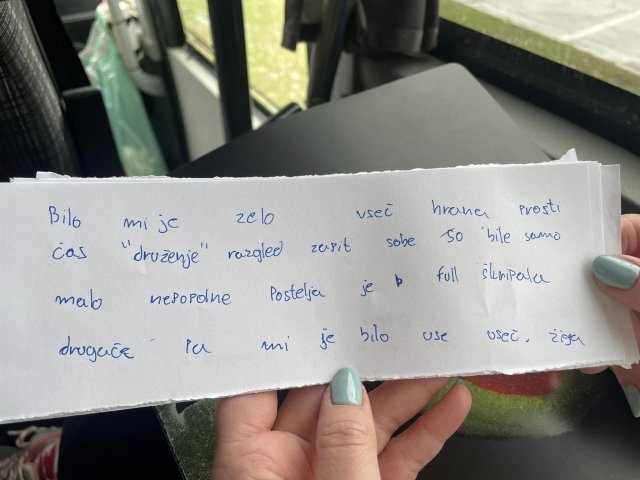 Bilo mi je zelo všeč hrana prosti
čas "druženje" razgled zapit sobe so bile samo
malo nepopolne Postelja je full škripala
drugače pa mi je bilo vse všeč. žiga